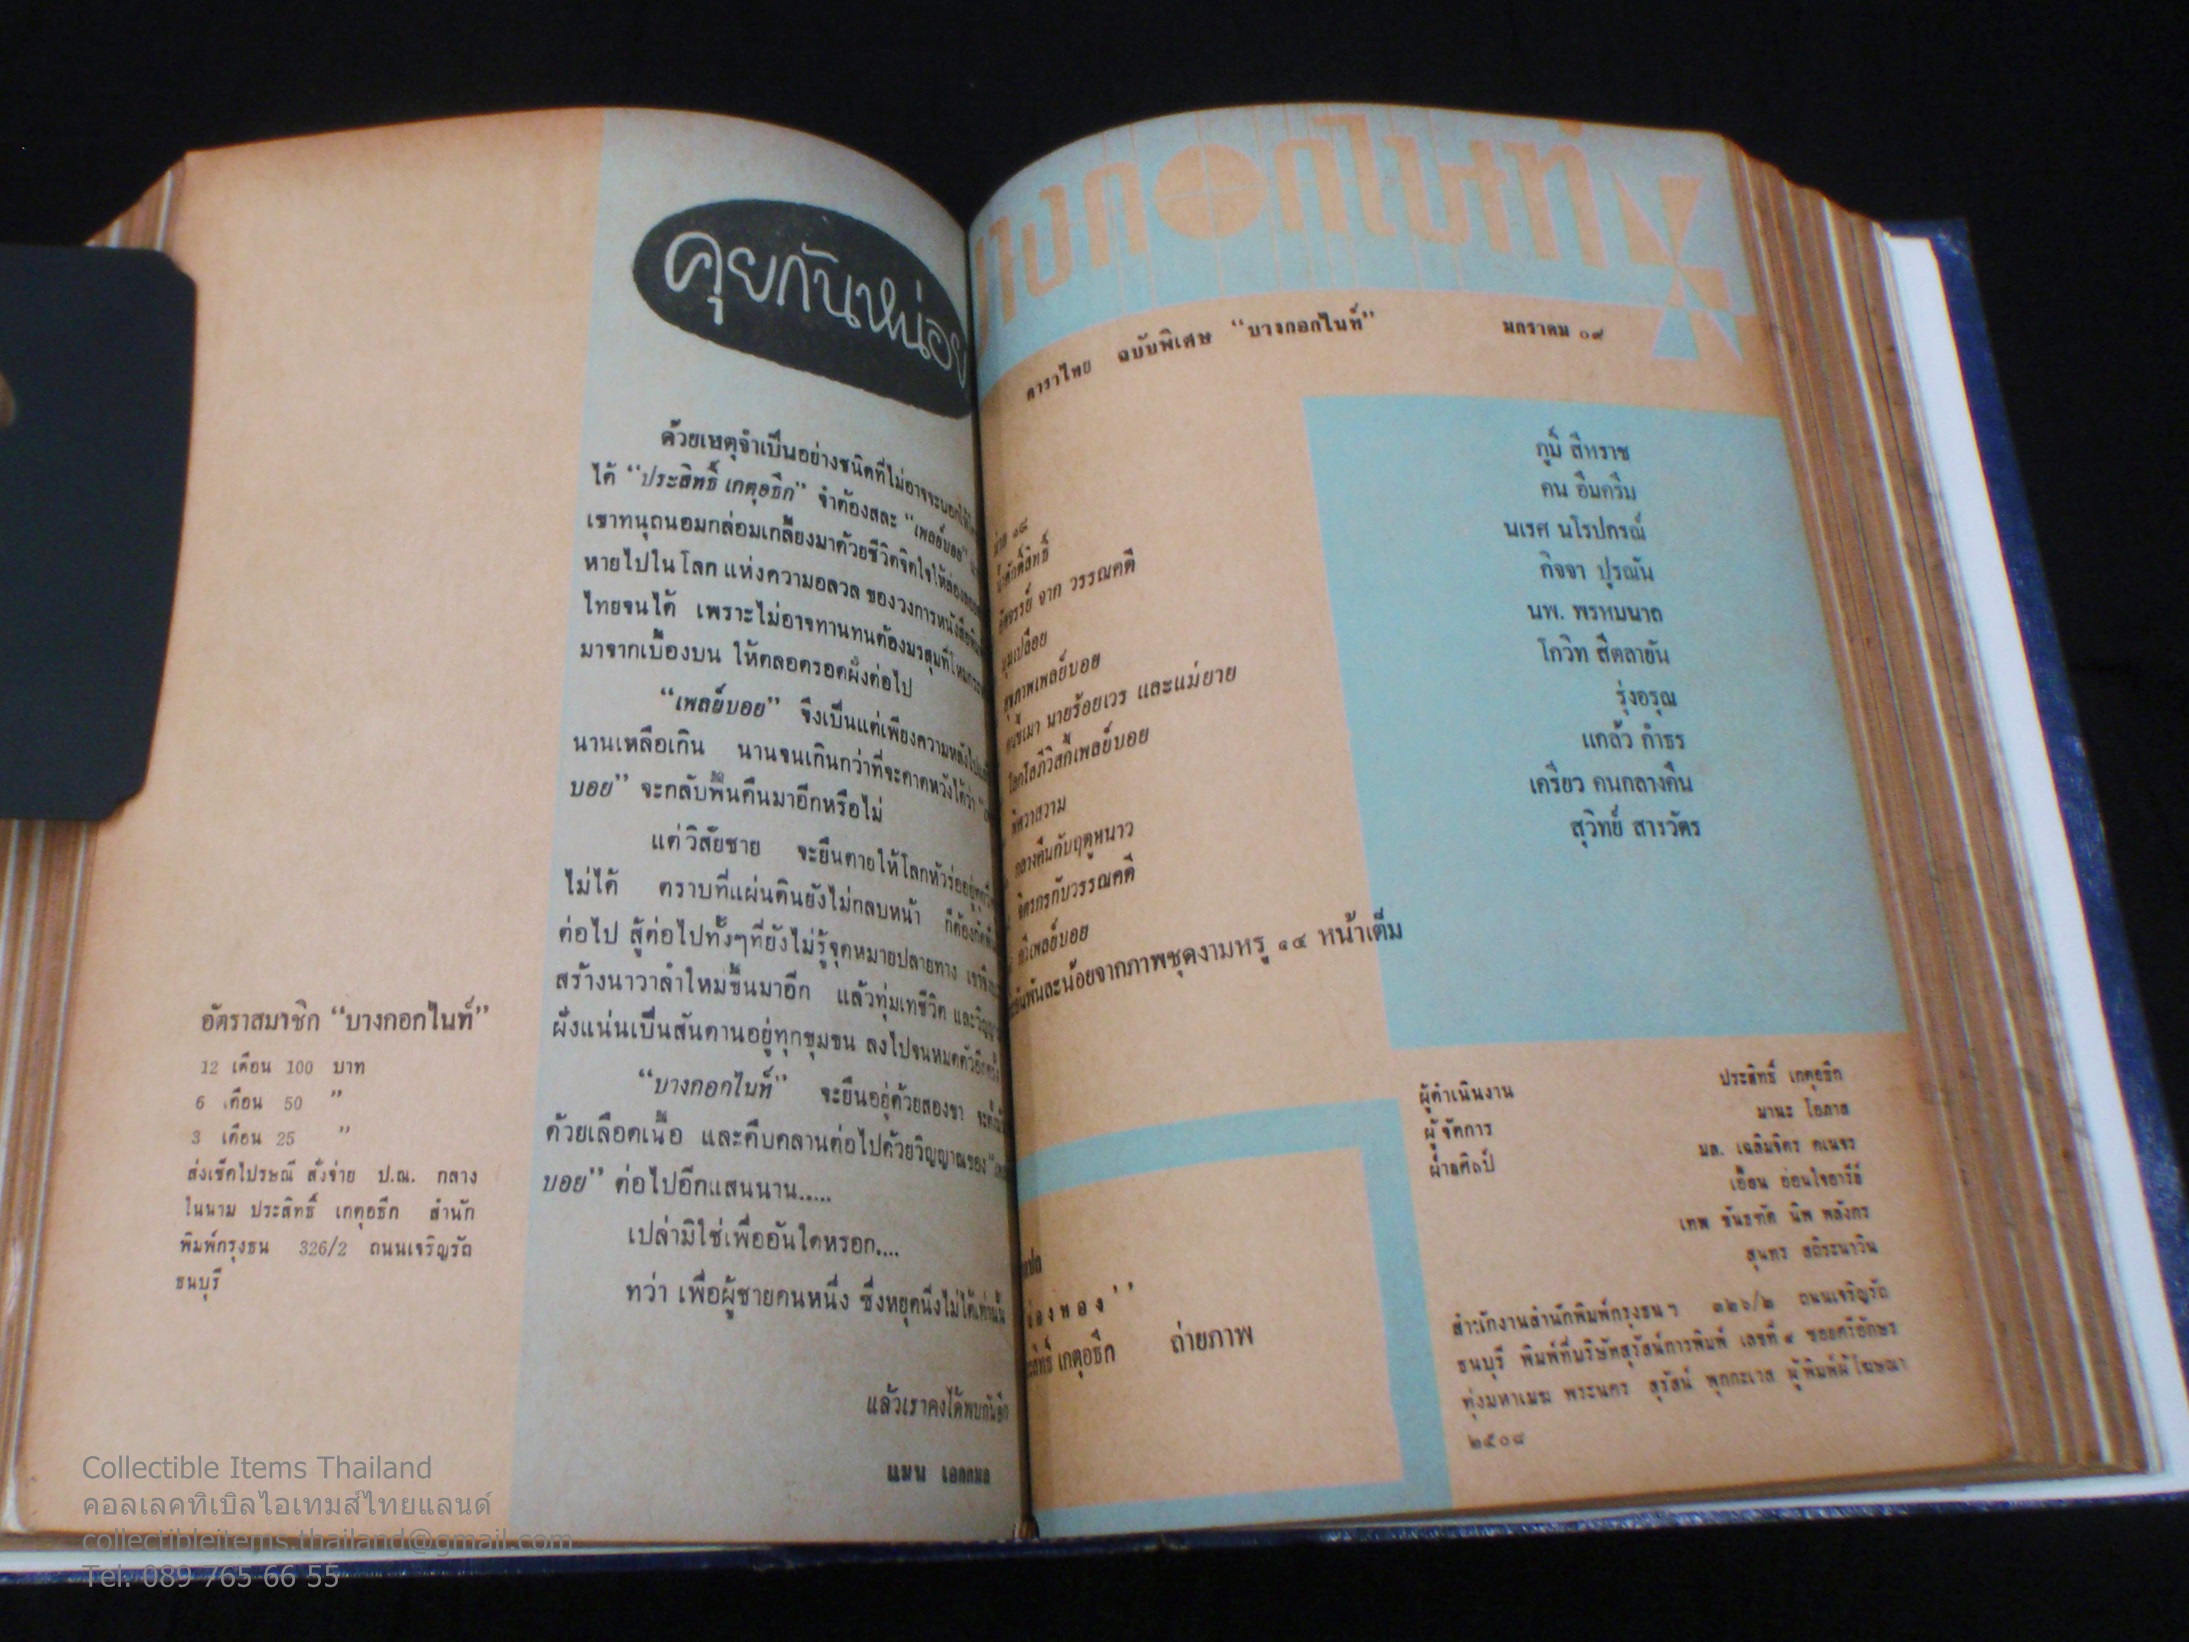 คุยกันหน่อย
ด้วยเหตุจำเป็นอย่างชนิดที่ไม่อาจจะบอกให้
ได้ “ประสิทธิ์ เกตุอธิก” จำต้องสละ “เพลย์บอย”
เขาทนุถนอมกล่อมเกลี้ยงมาด้วยชีวิตจิตใจให้ล่องลอย
หายไปในโลก แห่งความอลวล ของวงการหนังสือพิมพ์
ไทยจนได้ เพราะไม่อาจทานทนต้องมรสุมที่โหมกระ
มาจากเบื้องบน ให้ตลอดรอดฝั่งต่อไป
“เพลย์บอย” จึงเป็นแต่เพียงความหลังไป
นานเหลือเกิน นานจนเกินกว่าที่จะคาดหวังได้ว่า
บอย” จะกลับฟื้นคืนมาอีกหรือไม่
แต่วิสัยชาย จะยืนตายให้โลกหัวร่ออยู่
ไม่ได้ ตราบที่แผ่นดินยังไม่กลบหน้า ก็ต้อง
ต่อไป สู้ต่อไปทั้งๆที่ยังไม่รู้จุดหมายปลายทาง
สร้างนาวาลำใหม่ขึ้นมาอีก แล้วทุ่มเทชีวิต และวิญญาณ
ฝั่งแน่นเป็นสันดานอยู่ทุกขุมขน ลงไปจนหมดตัวอีกครั้ง
“บางกอกไนท์” จะยืนอยู่ด้วยสองขา
ด้วยเลือดเนื้อ และคืบคลานต่อไปด้วยวิญญาณของ
บอย” ต่อไปอีกแสนนาน.....
เปล่ามิใช่เพื่ออันใดหรอก....
ทว่า เพื่อผู้ชายคนหนึ่ง ซึ่งหยุดนิ่งไม่ได้เท่านั้น
แล้วเราคงได้พบกันอีก
แมน เอกกมล
อัตราสมาชิก “บางกอกไนท์”
12 เดือน 100 บาท
6 เดือน 50 ”
3 เดือน 25 ”
ส่งเช็คไปรษณี สั่งจ่าย ป.ณ. กลาง
ในนาม ประสิทธิ์ เกตุอธิก สำนัก
พิมพ์กรุงธน 326/2 ถนนเจริญรัถ
ธนบุรี
บางกอกไนท์
ดาราไทย ฉบับพิเศษ “บางกอกไนท์” มกราคม ๐๙
น้ำศักดิ์สิทธิ์
อัศจรรย์ จาก วรรณคดี
มุมเปลือย
สุขภาพเพลย์บอย
คนขี้เมา นายร้อยเวร และแม่ยาย
โลกโลกีวิสกี้เพลย์บอย
พิศวาสวาม
กลางคืนกับฤดูหนาว
จิตรกรกับวรรณคดี
เพลย์บอย
พันละน้อยจากภาพชุดงามหรู ๑๔ หน้าเต็ม
ภูมิ สีหราช
คน อิ่มครีม
นเรศ นโรปกรณ์
กิจจา ปูรณัน
นพ. พรหมนาถ
โกวิท สีตลายัน
รุ่งอรุณ
แกล้ว กำธร
เครียว คนกลางคืน
สุวิทย์ สารวัตร
ประสิทธิ์ เกตุอธิก ถ่ายภาพ
ผู้ดำเนินงาน ประสิทธิ์ เกตุอธิก
ผู้จัดการ มานะ โอภาส
ฝ่ายศิลป์ มล. เฉลิมจิตร คเนจร
เอื้อน อ่อนใจอารีย์
เทพ ขันธทัต นิพ พลังกร
สุนทร สถิระนาวิน
สำนักงานสำนักพิมพ์กรุงธนฯ ๓๒๖/๒ ถนนเจริญรัถ
ธนบุรี พิมพ์ที่บริษัทสุรัสน์การพิมพ์ เลขที่ ๙ ซอยศรีอักษร
ทุ่งมหาเมฆ พระนคร สุรัสน์ พุกกะเวส ผู้พิมพ์ผู้โฆษณา
๒๕๐๘
Collectible Items Thailand
คอลเลคทิเบิลไอเทมส์ไทยแลนด์
collectibleitems.thailand@gmail.com
Tel: 089 765 66 55